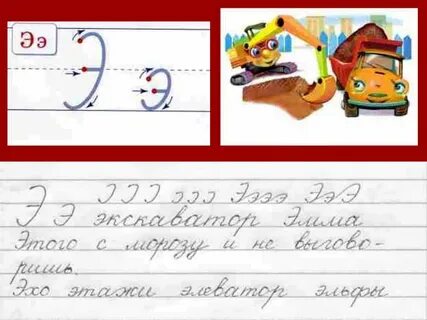 Ээ
Э э
Э Э Э Э э э э Ээээ ЭэЭ
Э экскаватор Эмма
Этого с морозу и не выгово-
ришь.
Эхо этажи элеватор эльфы